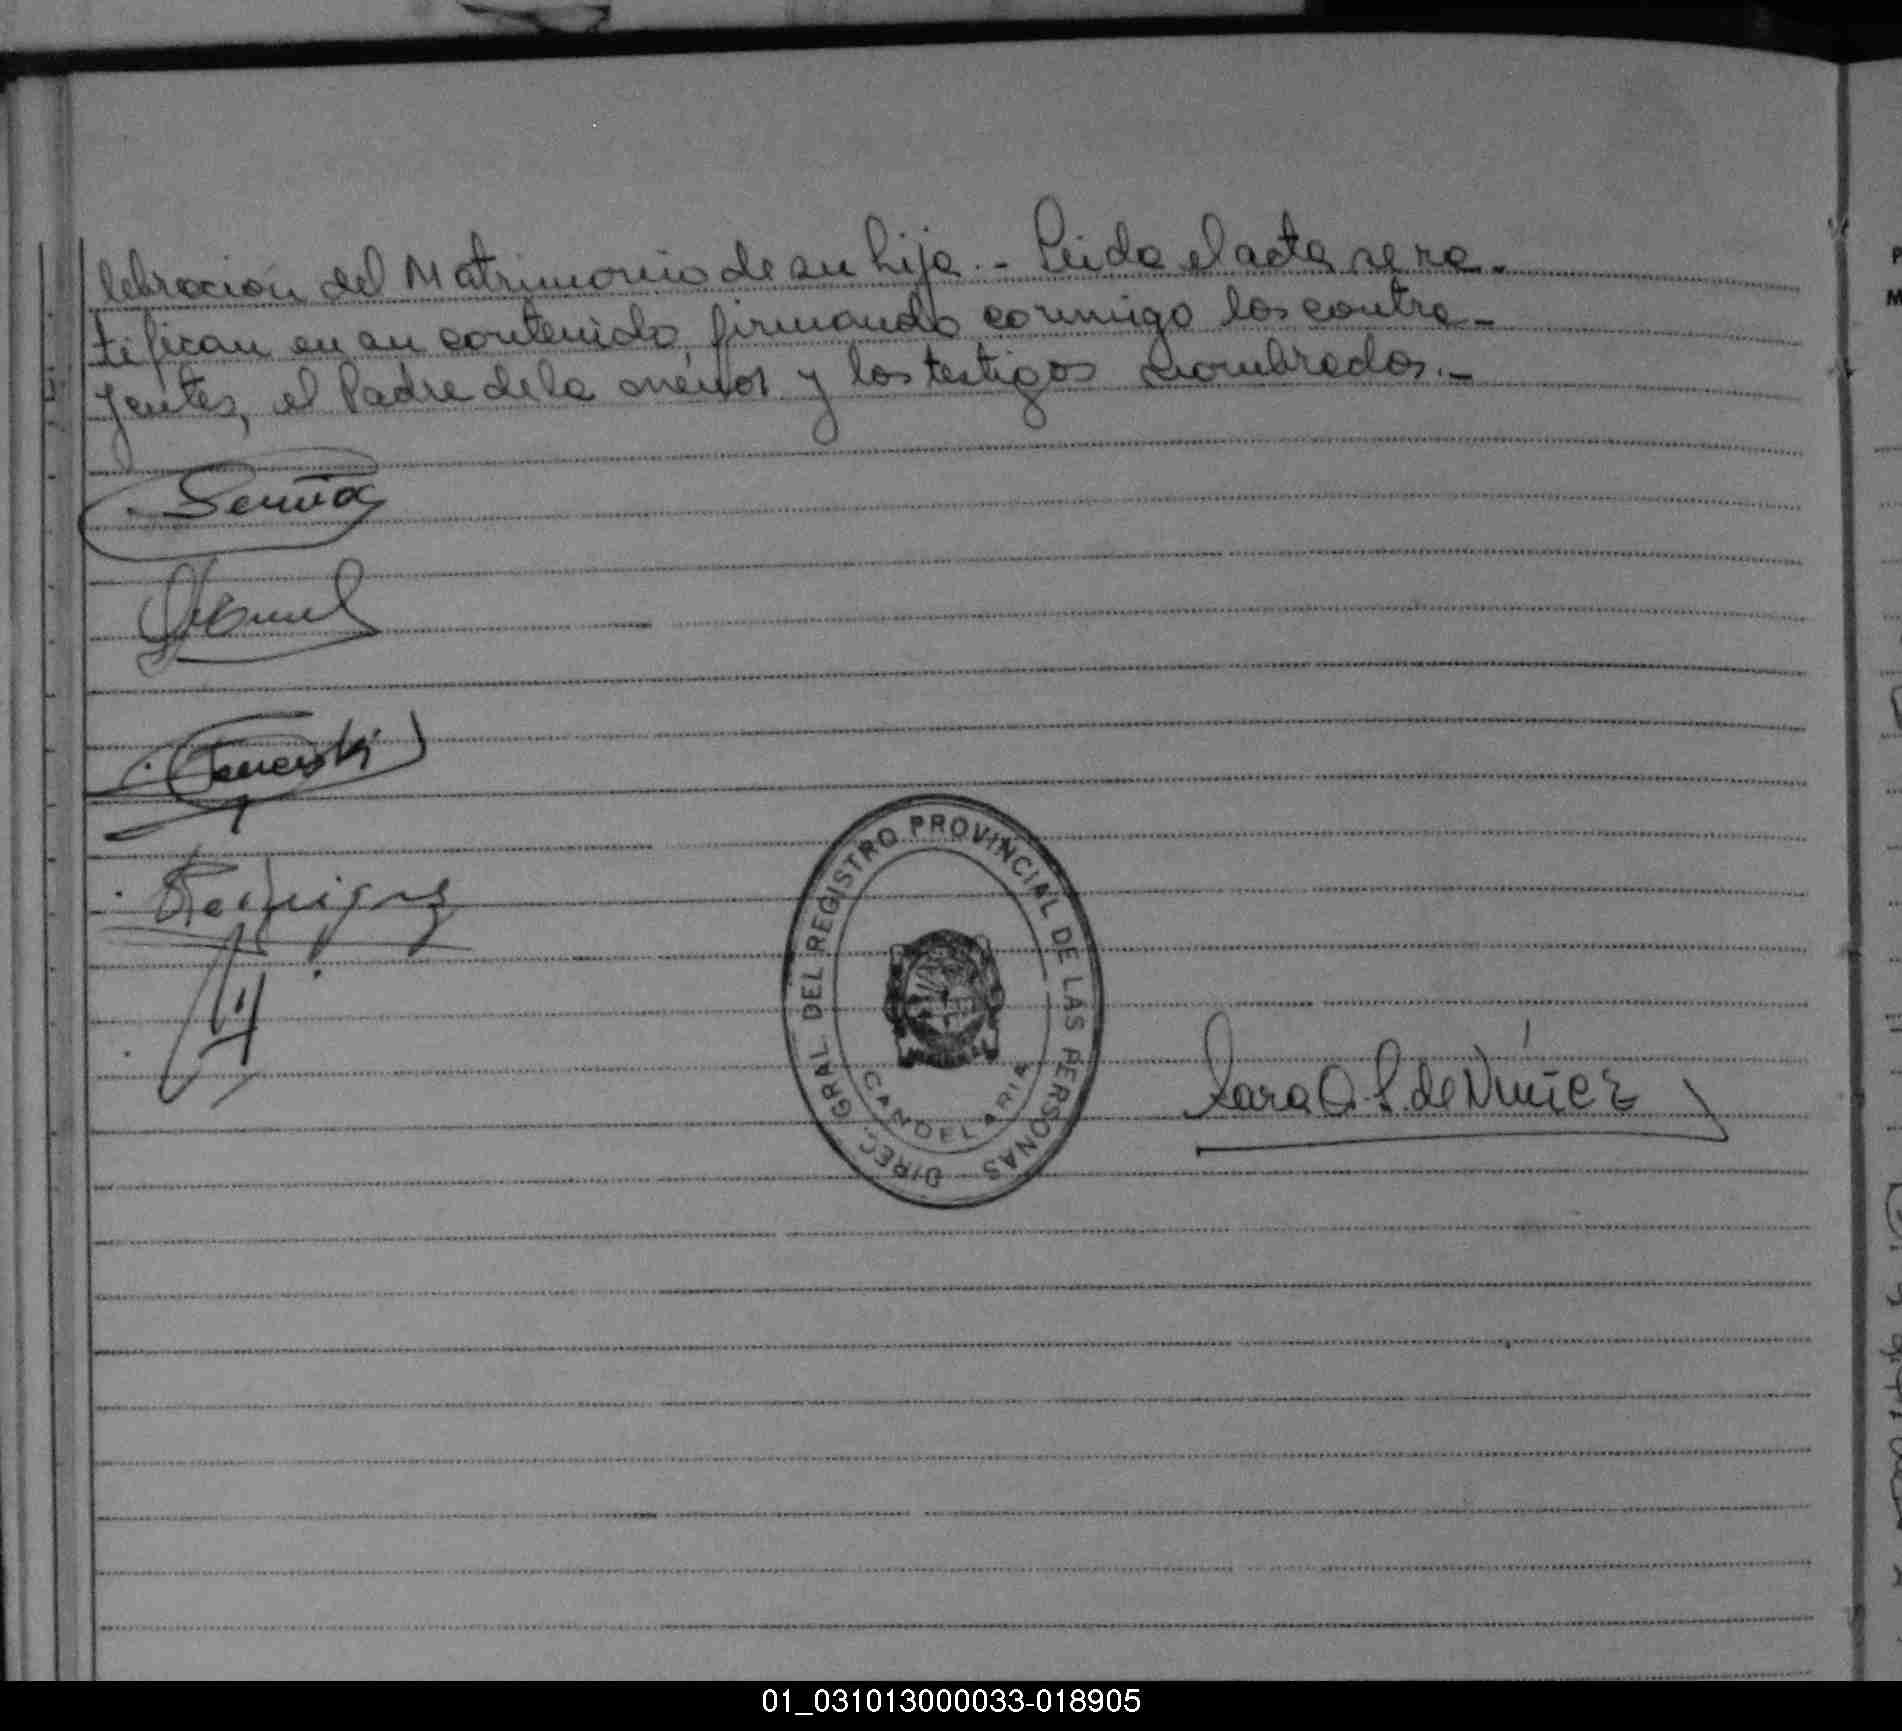 lebración del Matrimonio de su hija.- Leida el acta se ra-
tifican en su contenido, firmando conmigo los contra-
yentes, el Padre de la menor y los testigos nombrados.-
Rodriguez
DIREC. GRAL DEL REGISTRO PROVINCIAL DE LAS PERSONAS
CANDELARIA
Sara O. S. de Núñez
01_031013000033-018905